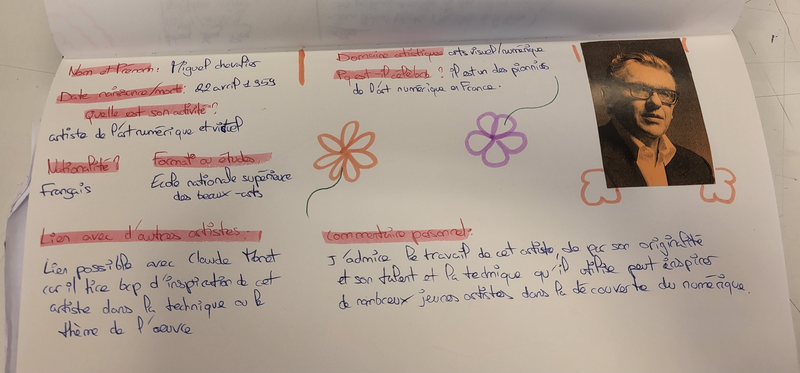 Nom et Prénom: Miguel chevalier
Date naissance/mort: 22 avril 1959
Quelle est son activité?
artiste de l'art numérique et virtuel
Nationalité?
Français
Format ou études
Ecole nationale supérieure
des beaux-arts
Lien avec d'autres artistes:
Lien possible avec Claude Monet
car il tire bcp d'inspiration de cet
artiste dans la technique ou le
thème de l'œuvre
Domaine artistique: arts visuel/numérique
Pq est-il célèbre? il est un des pionniers
de l'art numérique en France.
Commentaire personnel:
J'admire le travail de cet artiste, de par son originalité
et son talent et la technique qu'il utilise peut inspirer
de nombreux jeunes artistes dans la découverte du numérique.